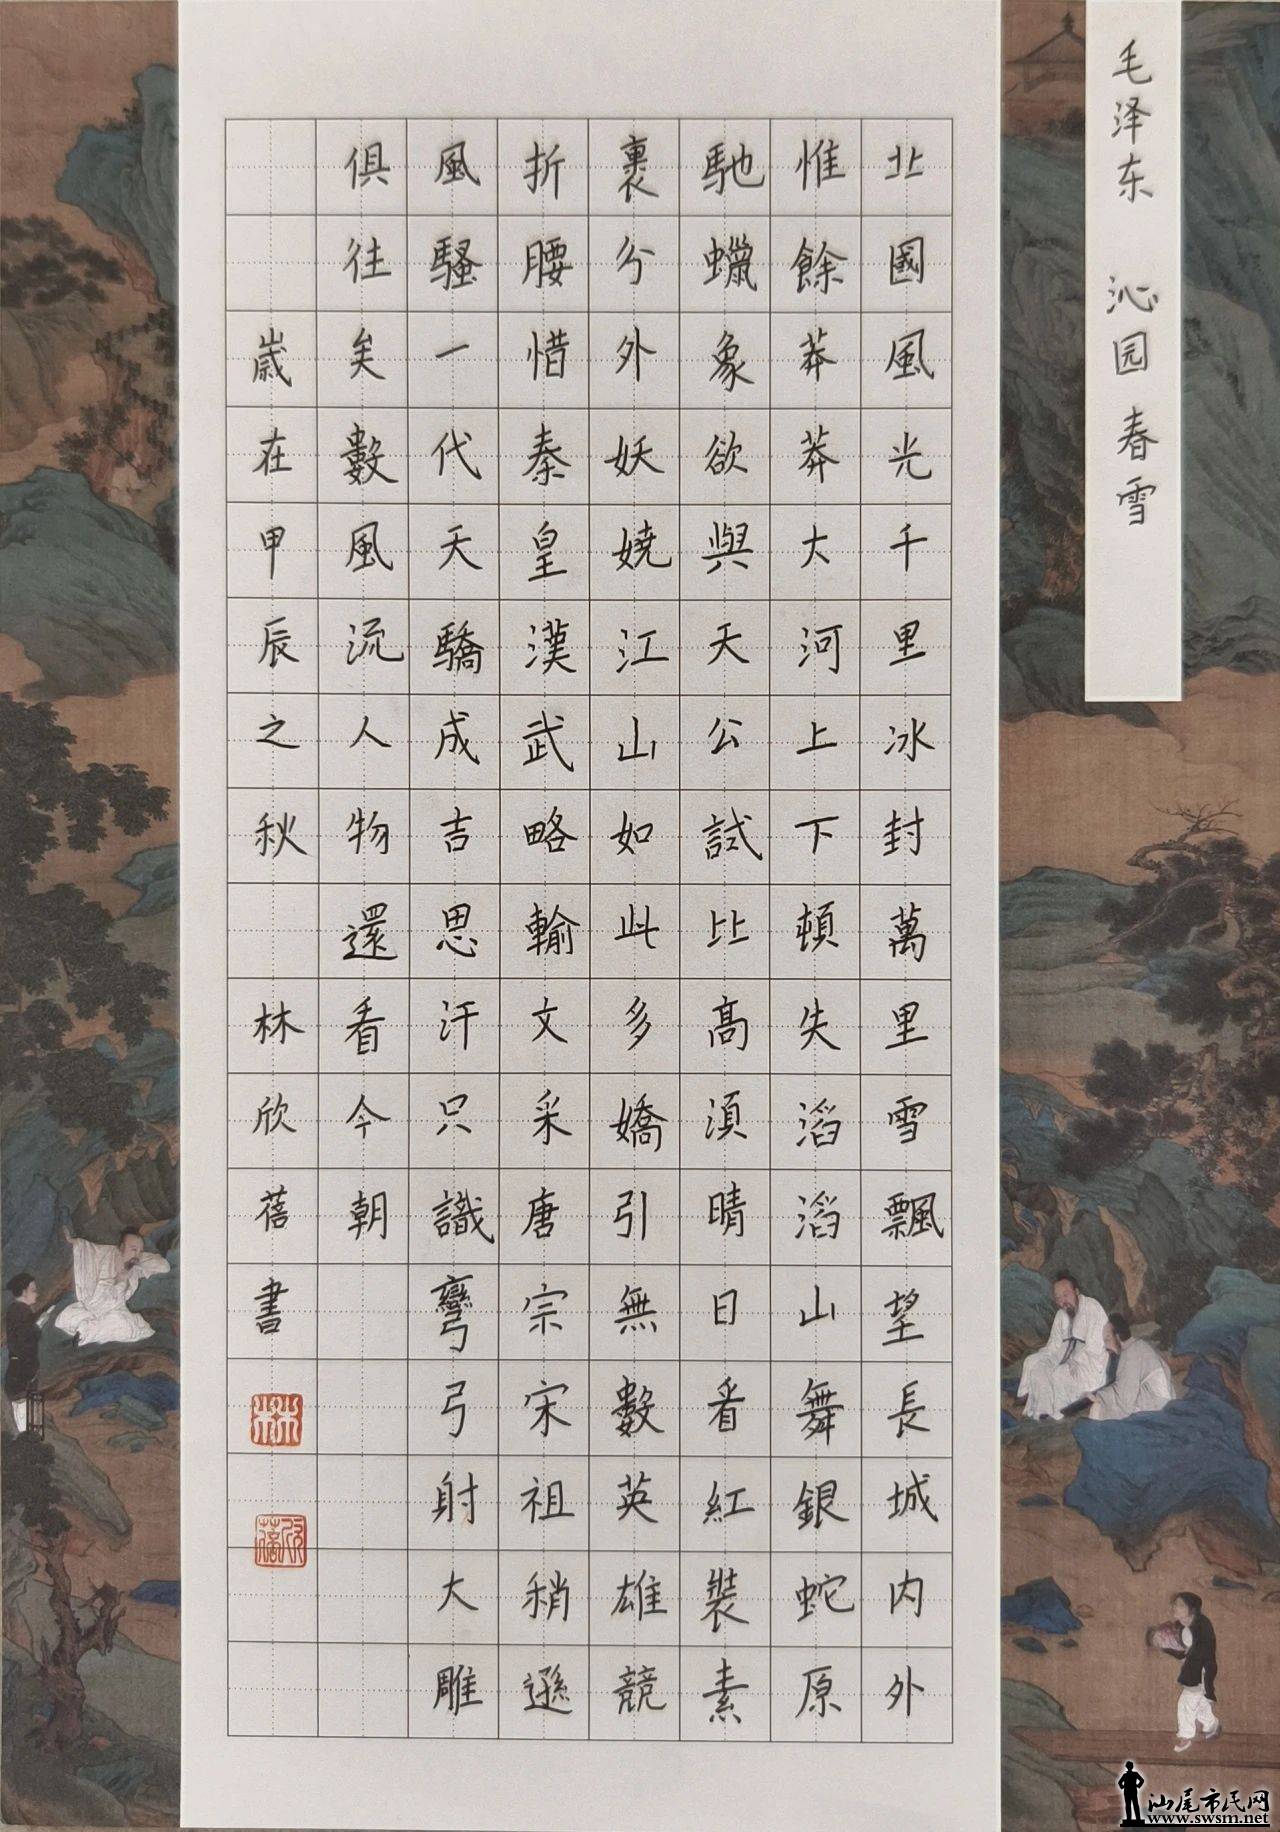 毛泽东 沁园春雪
北國風光千里冰封萬里雪飄望長城内外
惟餘莽莽大河上下頓失滔滔山舞銀蛇原
馳蠟象欲與天公試比高須晴日看紅裝素
裹分外妖嬈江山如此多嬌引無數英雄競
折腰惜秦皇漢武略輸文采唐宗宋祖稍遜
風騷一代天驕成吉思汗只識彎弓射大雕
俱往矣數風流人物還看今朝
歲在甲辰之秋 林欣蓓書
林
欣蓓
汕尾市民网
www.swsm.net